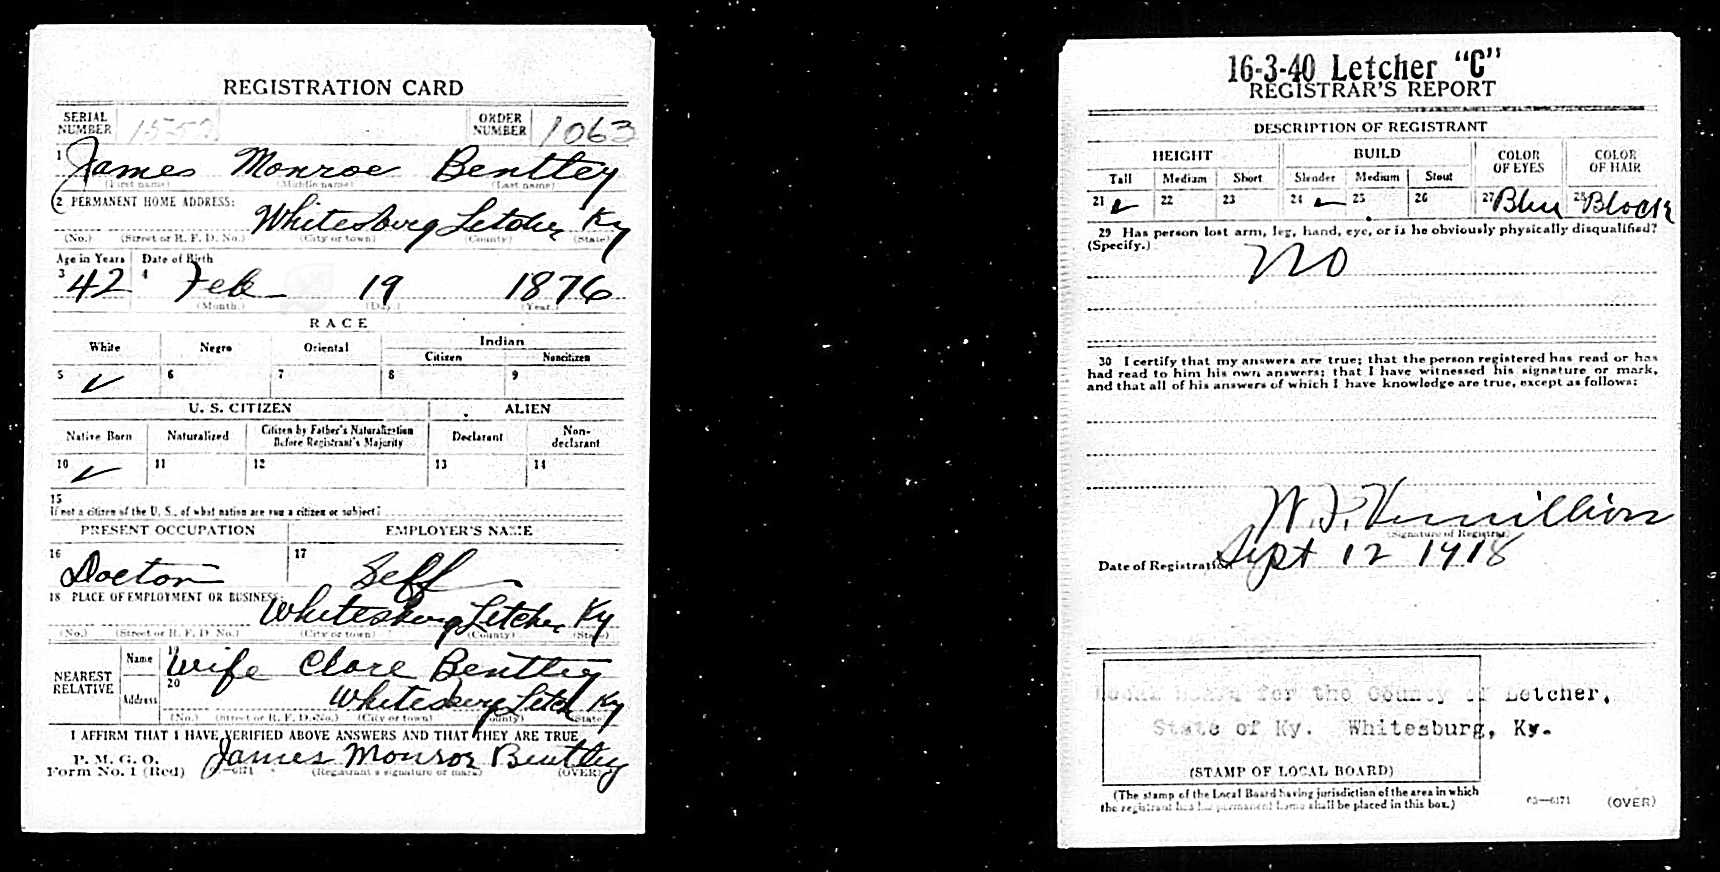 REGISTRATION CARD
SERIAL NUMBER 155
ORDER NUMBER 1063
1 James Monroe Bentley
(First name) (Middle name) (Last name)
2 PERMANENT HOME ADDRESS:
Whitesburg Letcher Ky
(No.) (Street or R. F. D. No.) (City or town) (County) (State)
Age in Years Date of Birth
3 42 4 Feb 19 1876
(Month.) (Day.) (Year.)
RACE
White Negro Oriental Indian
Citizen Noncitizen
5 ✓ 6 7 8 9
U. S. CITIZEN ALIEN
Native Born Naturalized Citizen by Father's Naturalization Before Registrant's Majority Declarant Non-declarant
10 ✓ 11 12 13 14
15
If not a citizen of the U. S., of what nation are you a citizen or subject?
PRESENT OCCUPATION EMPLOYER'S NAME
16 Doctor 17 Self
18 PLACE OF EMPLOYMENT OR BUSINESS:
Whitesburg Letcher Ky
(No.) (Street or R. F. D. No.) (City or town) (County) (State)
NEAREST RELATIVE
Name 19 Wife Clore Bentley
Address 20 Whitesburg Letch Ky
(No.) (Street or R. F. D. No.) (City or town) (County) (State)
I AFFIRM THAT I HAVE VERIFIED ABOVE ANSWERS AND THAT THEY ARE TRUE
P. M. G. O.
Form No. 1 (Red) —6171 James Monroe Bentley
(Registrant's signature or mark) (OVER)
16-3-40 Letcher "C"
REGISTRAR'S REPORT
DESCRIPTION OF REGISTRANT
HEIGHT BUILD COLOR OF EYES COLOR OF HAIR
Tall Medium Short Slender Medium Stout
21 ✓ 22 23 24 ✓ 25 26 27 Blue 28 Black
29 Has person lost arm, leg, hand, eye, or is he obviously physically disqualified?
(Specify.)
No
30 I certify that my answers are true; that the person registered has read or has
had read to him his own answers; that I have witnessed his signature or mark,
and that all of his answers of which I have knowledge are true, except as follows:
Vermillion
(Signature of Registrar)
Date of Registration Sept 12 1918
Local Board for the County of Letcher,
State of Ky. Whitesburg, Ky.
(STAMP OF LOCAL BOARD)
(The stamp of the Local Board having jurisdiction of the area in which
the registrant has his permanent home shall be placed in this box.)
03—6171 (OVER)